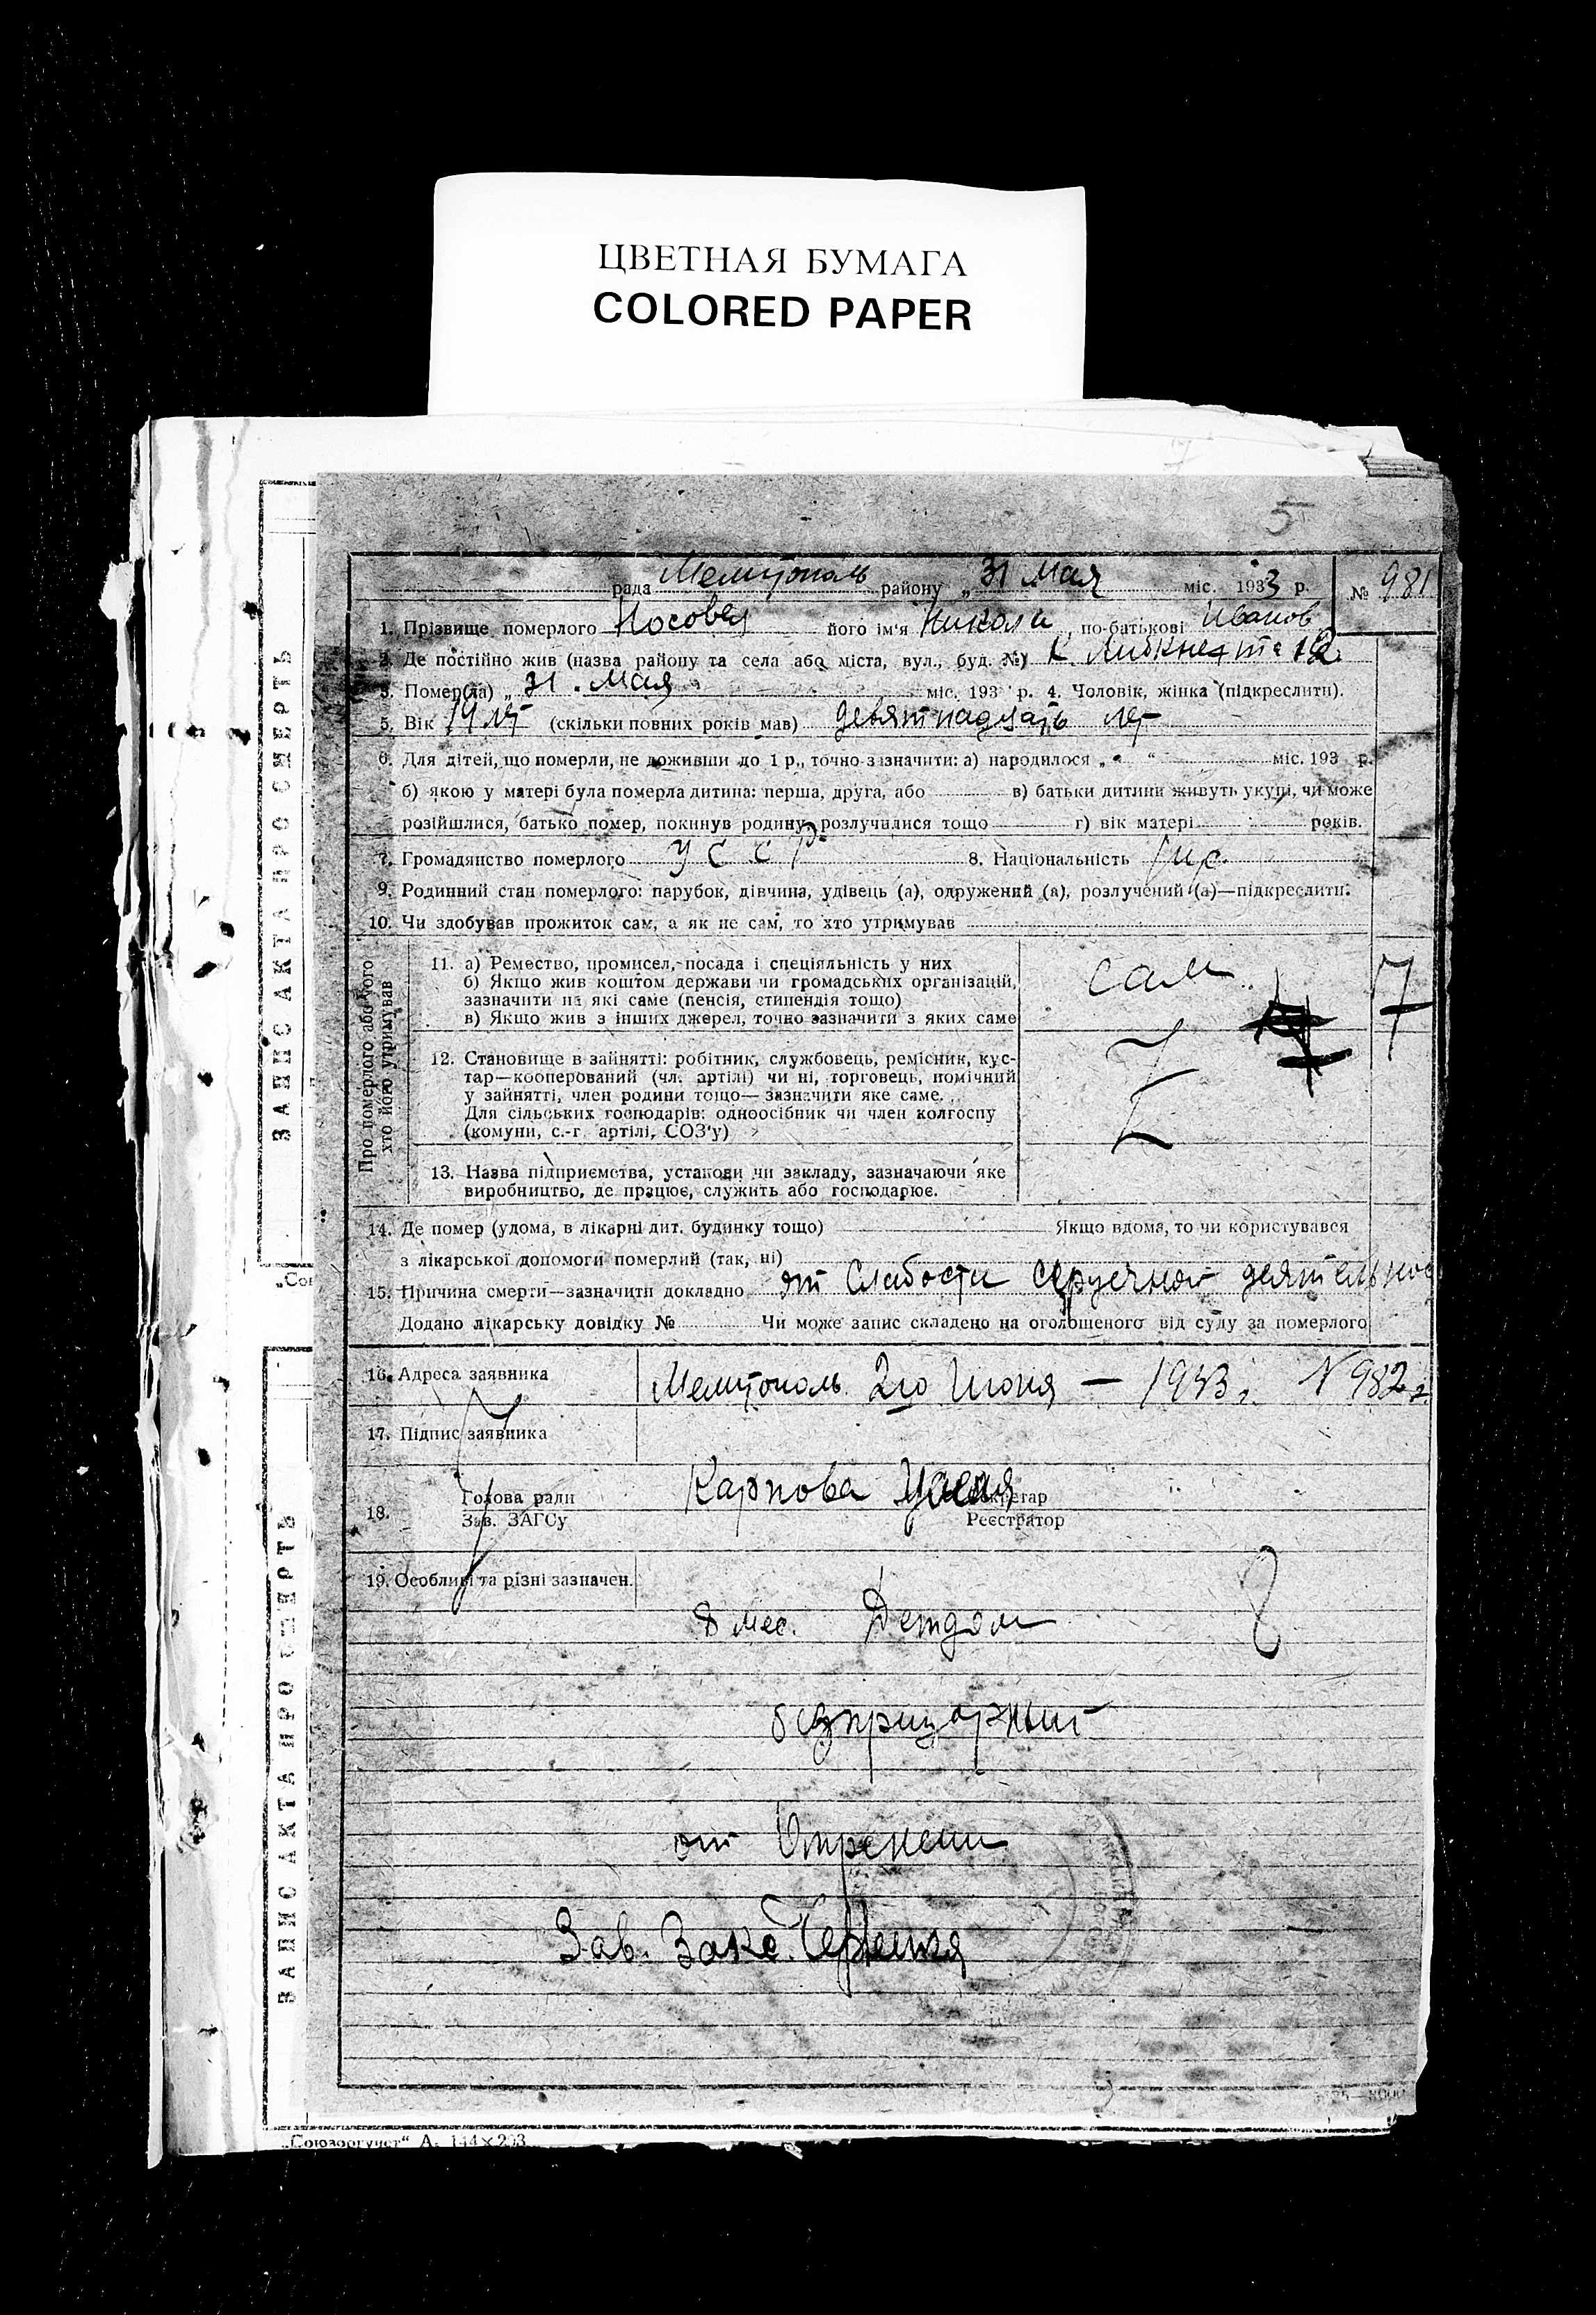 ЦВЕТНАЯ БУМАГА
COLORED PAPER
5
рада Мелитополь району „ 31 Мая міс. 1933 р. № 981
1. Прізвище померлого Носовец його ім'я Никола по-батькові Иванов
2. Де постійно жив (назва району та села або міста, вул., буд. №) К. Либкнехта 12
3. Помер(ла) „ 31. Мая міс. 193 р. 4. Чоловік, жінка (підкреслити).
5. Вік 19 лет (скільки повних років мав) девятнадцать лет
6. Для дітей, що померли, не доживши до 1 р., точно зазначити: а) народилося „ “ міс. 193 р.
б) якою у матері була померла дитина: перша, друга, або в) батьки дитини живуть укупі, чи може
розійшлися, батько помер, покинув родину, розлучилися тощо г) вік матері років.
7. Громадянство померлого УССР 8. Національність укр.
9. Родинний стан померлого: парубок, дівчина, удівець (а), одружений (а), розлучений (а)—підкреслити.
10. Чи здобував прожиток сам, а як не сам, то хто утримував
Про померлого або того хто його утримував
11. а) Ремество, промисел, посада і спеціяльність у них
б) Якщо жив коштом держави чи громадських організацій,
зазначити на які саме (пенсія, стипендія тощо)
в) Якщо жив з інших джерел, точно зазначити з яких саме
сам
7
12. Становище в зайнятті: робітник, службовець, ремісник, кус-
тар—кооперований (чл. артілі) чи ні, торговець, помічний
у зайнятті, член родини тощо— зазначити яке саме.
Для сільських господарів: одноосібник чи член колгоспу
(комуни, с.-г. артілі, СОЗ'у)
13. Назва підприємства, установи чи закладу, зазначаючи яке
виробництво, де працює, служить або господарює.
14. Де помер (удома, в лікарні дит. будинку тощо) Якщо вдома, то чи користувався
з лікарської допомоги померлий (так, ні)
15. Причина смерти—зазначити докладно от Слабости сердечной деятельнос
Додано лікарську довідку № Чи може запис складено на оголошеного від суду за померлого
16. Адреса заявника Мелитополь 2го Июня — 1933 г. N 982
17. Підпис заявника
18. Голова ради Карпова Секретар
Зав. ЗАГСу Реєстратор
19. Особливі та різні зазначен.
8 мес. Детдом 8
безпризорный
от
Зав. Закс.
ЗАПИС АКТА ПРО СМЕРТЬ
ЗАПИС АКТА ПРО СМЕРТЬ
„Союзоргучет“ А. 144×203